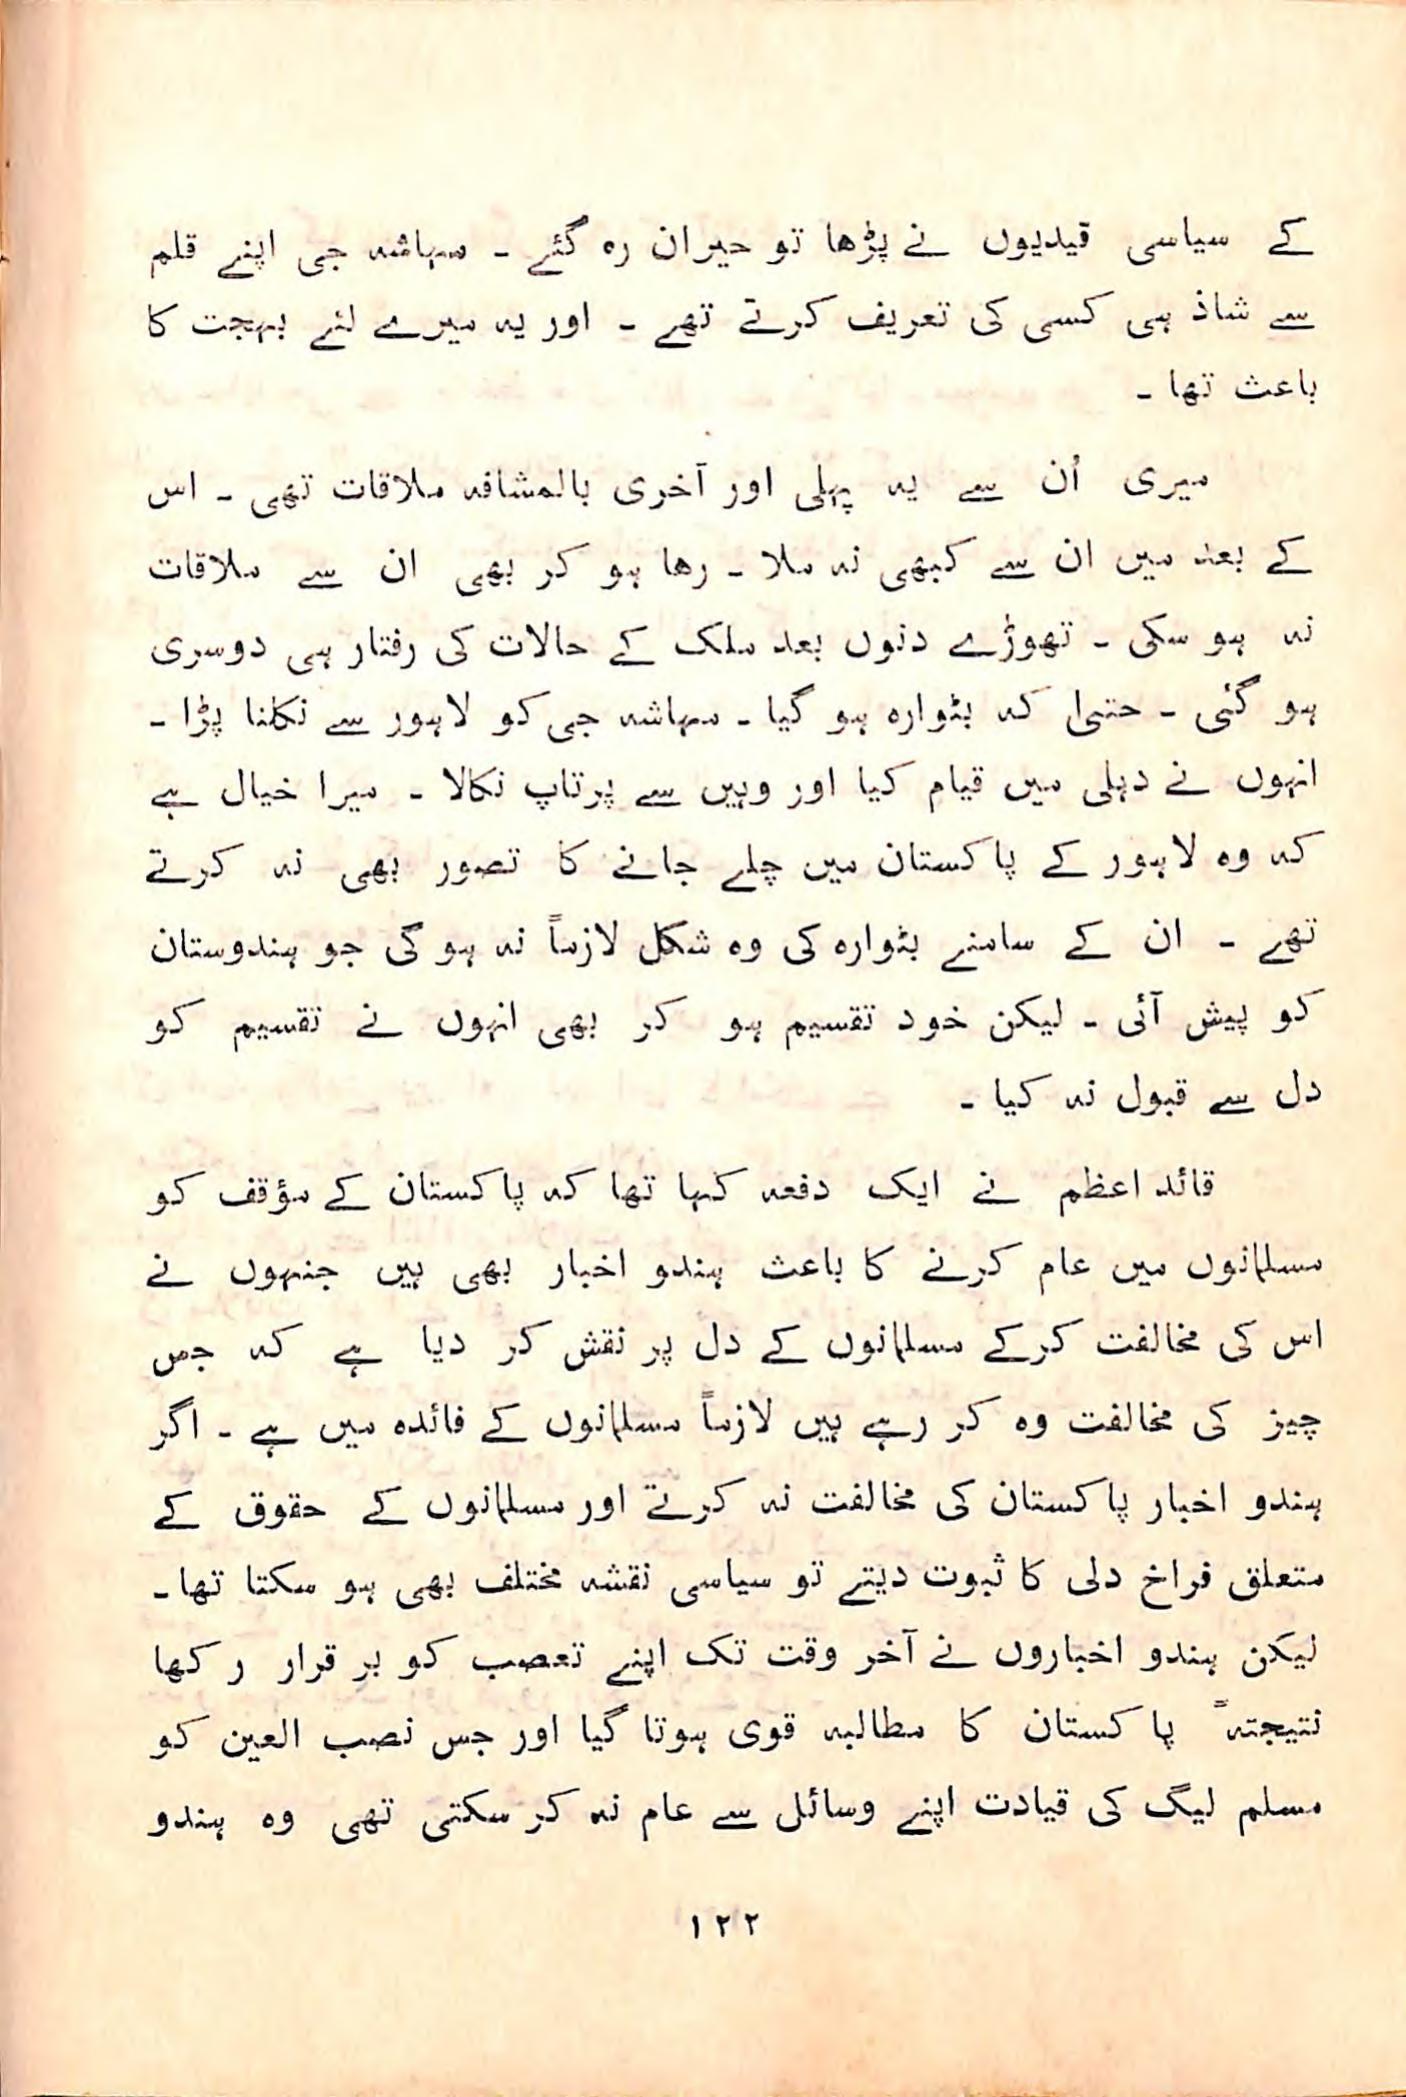 کے سیاسی قیدیوں نے پڑھا تو حیران رہ گئے ۔ مہاشہ جی اپنے قلم
سے شاذ ہی کسی کی تعریف کرتے تھے ۔ اور یہ میرے لئے بہجت کا
باعث تھا ۔
میری اُن سے یہ پہلی اور آخری بالمشافہ ملاقات تھی ۔ اس
کے بعد میں ان سے کبھی نہ ملا ۔ رھا ہو کر بھی ان سے ملاقات
نہ ہو سکی ۔ تھوڑے دنوں بعد ملک کے حالات کی رفتار ہی دوسری
ہو گئی ۔ حتیٰ کہ بٹوارہ ہو گیا ۔ مہاشہ جی کو لاہور سے نکلنا پڑا ۔
انہوں نے دہلی میں قیام کیا اور وہیں سے پرتاپ نکالا ۔ میرا خیال ہے
کہ وہ لاہور کے پاکستان میں چلے جانے کا تصور بھی نہ کرتے
تھے ۔ ان کے سامنے بٹوارہ کی وہ شکل لازماً نہ ہو گی جو ہندوستان
کو پیش آئی ۔ لیکن خود تقسیم ہو کر بھی انہوں نے تقسیم کو
دل سے قبول نہ کیا ۔
قائد اعظم نے ایک دفعہ کہا تھا کہ پاکستان کے مؤقف کو
مسلمانوں میں عام کرنے کا باعث ہندو اخبار بھی ہیں جنہوں نے
اس کی مخالفت کرکے مسلمانوں کے دل پر نقش کر دیا ہے کہ جس
چیز کی مخالفت وہ کر رہے ہیں لازماً مسلمانوں کے فائدہ میں ہے ۔ اگر
ہندو اخبار پاکستان کی مخالفت نہ کرتے اور مسلمانوں کے حقوق کے
متعلق فراخ دلی کا ثبوت دیتے تو سیاسی نقشہ مختلف بھی ہو سکتا تھا ۔
لیکن ہندو اخباروں نے آخر وقت تک اپنے تعصب کو بر قرار رکھا
نتیجتہً پاکستان کا مطالبہ قوی ہوتا گیا اور جس نصب العین کو
مسلم لیگ کی قیادت اپنے وسائل سے عام نہ کر سکتی تھی وہ ہندو
۱۲۲